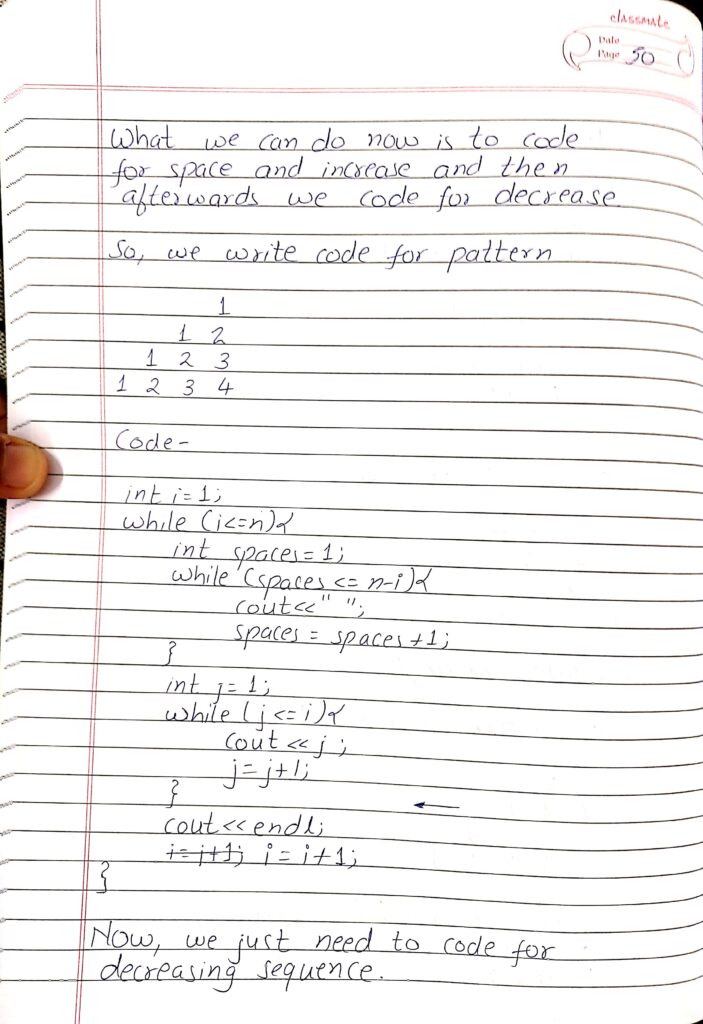 classmate
Date
Page 50
What we can do now is to code
for space and increase and then
afterwards we code for decrease.
So, we write code for pattern
1
1 2
1 2 3
1 2 3 4
Code-
int i=1;
while (i<=n){
int spaces=1;
while (spaces <= n-i){
cout<<" ";
spaces = spaces +1;
}
int j=1;
while (j<=i){
cout << j ;
j=j+1;
}
←
cout<<endl;
i=j+1; i=i+1;
}
Now, we just need to code for
decreasing sequence.